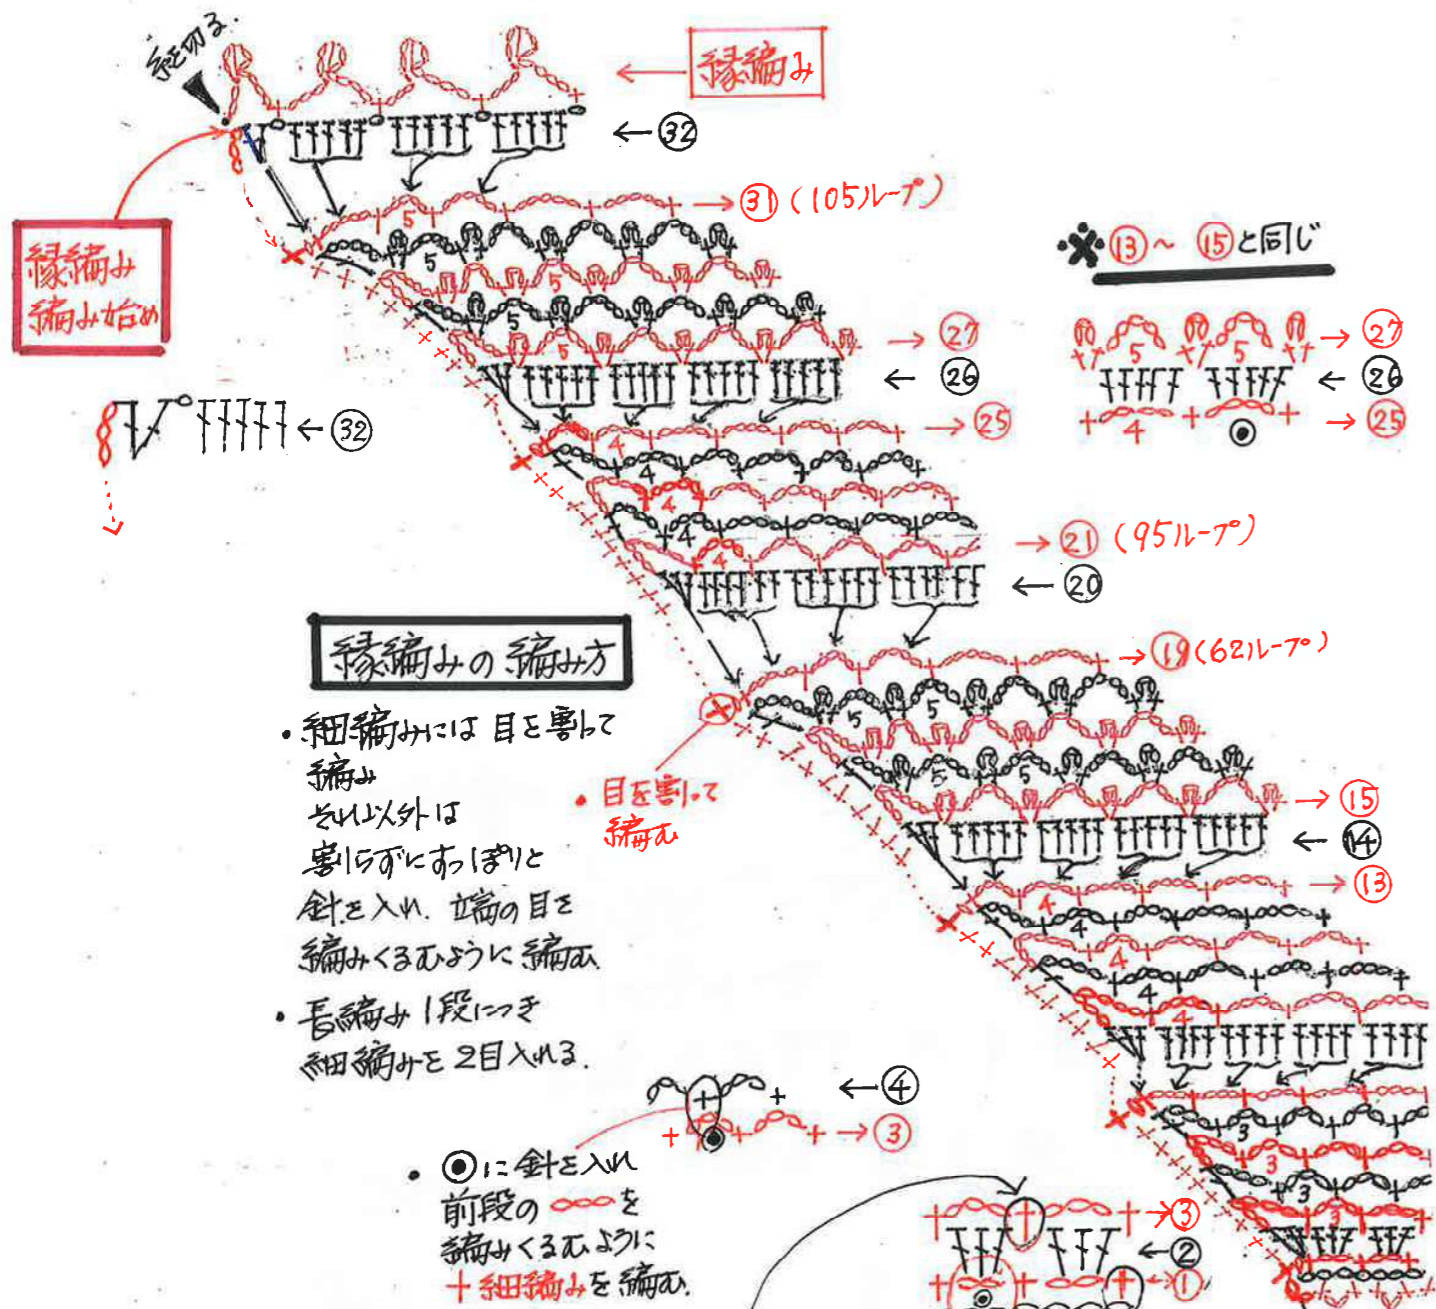 糸を切る.
← 縁編み
← ㉜
→ ㉛ (105ループ)
5
5
5
5
5
縁編み
編み始め
※ ⑬～⑮と同じ
→ ㉗
← ㉖
→ ㉕
5 5 → ㉗
← ㉖
4 → ㉕
← ㉜
4
4
4
4
4
→ ㉑ (95ループ)
← ⑳
縁編みの編み方
→ ⑲ (62ループ)
5 5
5 5
・細編みには 目を割って
編み
それ以外は
割らずにすっぽりと
針を入れ. 端の目を
編みくるむように編む.
・長編み1段につき
細編みを2目入れる.
・目を割って
編む
→ ⑮
← ⑭
→ ⑬
4
4
4
4
4
3
3
3
3
← ④
→ ③
・◉に針を入れ
前段の を
編みくるむように
+細編みを編む.
→ ③
← ②
← ①